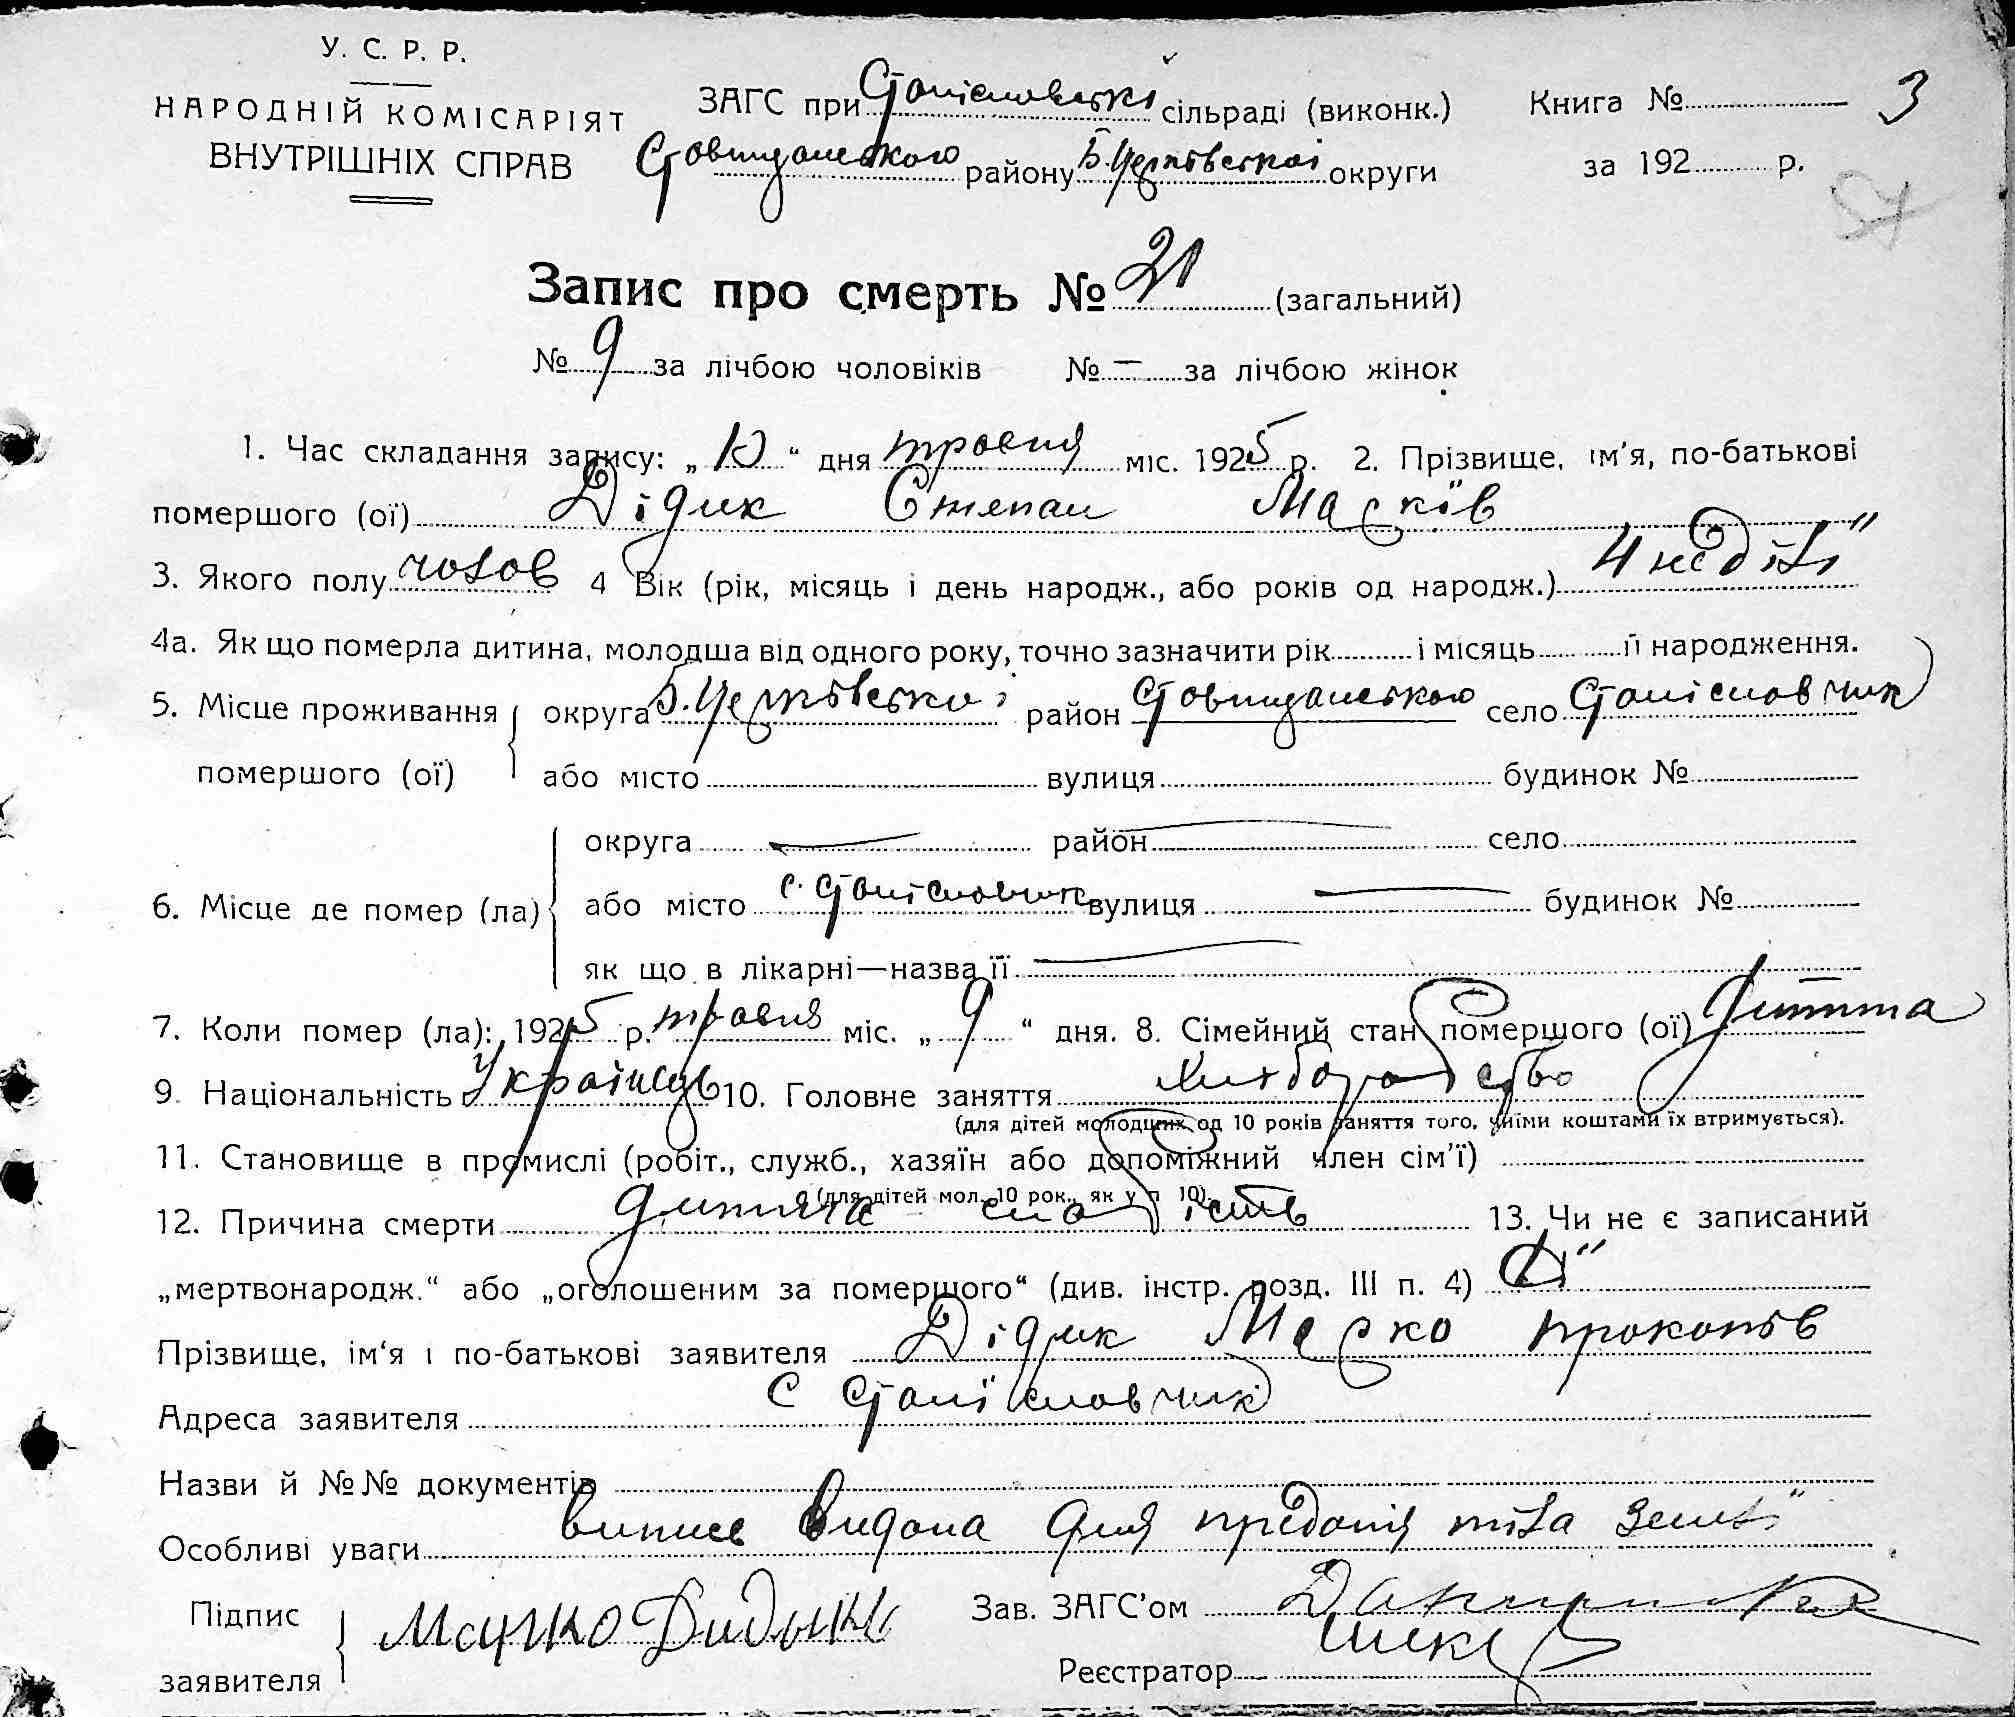 У. С. Р. Р.
НАРОДНІЙ КОМІСАРІЯТ
ВНУТРІШНІХ СПРАВ
ЗАГС при Станіславські сільраді (виконк.)
Ставищанського району Б.Церківської округи
Книга №
3
за 192 р.
Запис про смерть № 21 (загальний)
№ 9 за лічбою чоловіків № — за лічбою жінок
1. Час складання запису: „10“ дня травня міс. 1925 р. 2. Прізвище, ім'я, по-батькові
помершого (ої) Дідик Степан Марків
3. Якого полу чолов 4 Вік (рік, місяць і день народж., або років од народж.) 4 неділі
4а. Як що померла дитина, молодша від одного року, точно зазначити рік і місяць її народження.
5. Місце проживання округа Б.Церківської район Ставищанського село Станіславчик
помершого (ої) або місто вулиця будинок №
округа — район — село
6. Місце де помер (ла) або місто с. Станіславчик вулиця — будинок №
як що в лікарні—назва її —
7. Коли помер (ла): 1925 р. травня міс. „9“ дня. 8. Сімейний стан помершого (ої) дитина
9. Національність Українець 10. Головне заняття Хліборобство
(для дітей молодших од 10 років заняття того, чиїми коштами їх втримується).
11. Становище в промислі (робіт., служб., хазяїн або допоміжний член сім'ї)
(для дітей мол. 10 рок., як у п 10).
12. Причина смерти дитяча слабість 13. Чи не є записаний
„мертвонародж.“ або „оголошеним за помершого“ (див. інстр. розд. III п. 4) Ні
Прізвище, ім'я і по-батькові заявителя Дідик Марко прокопів
Адреса заявителя с Станіславчик
Назви й №№ документів
Особливі уваги випис видана для предання тіла землі
Підпис
заявителя Марко Дидык
Зав. ЗАГС'ом
Реєстратор